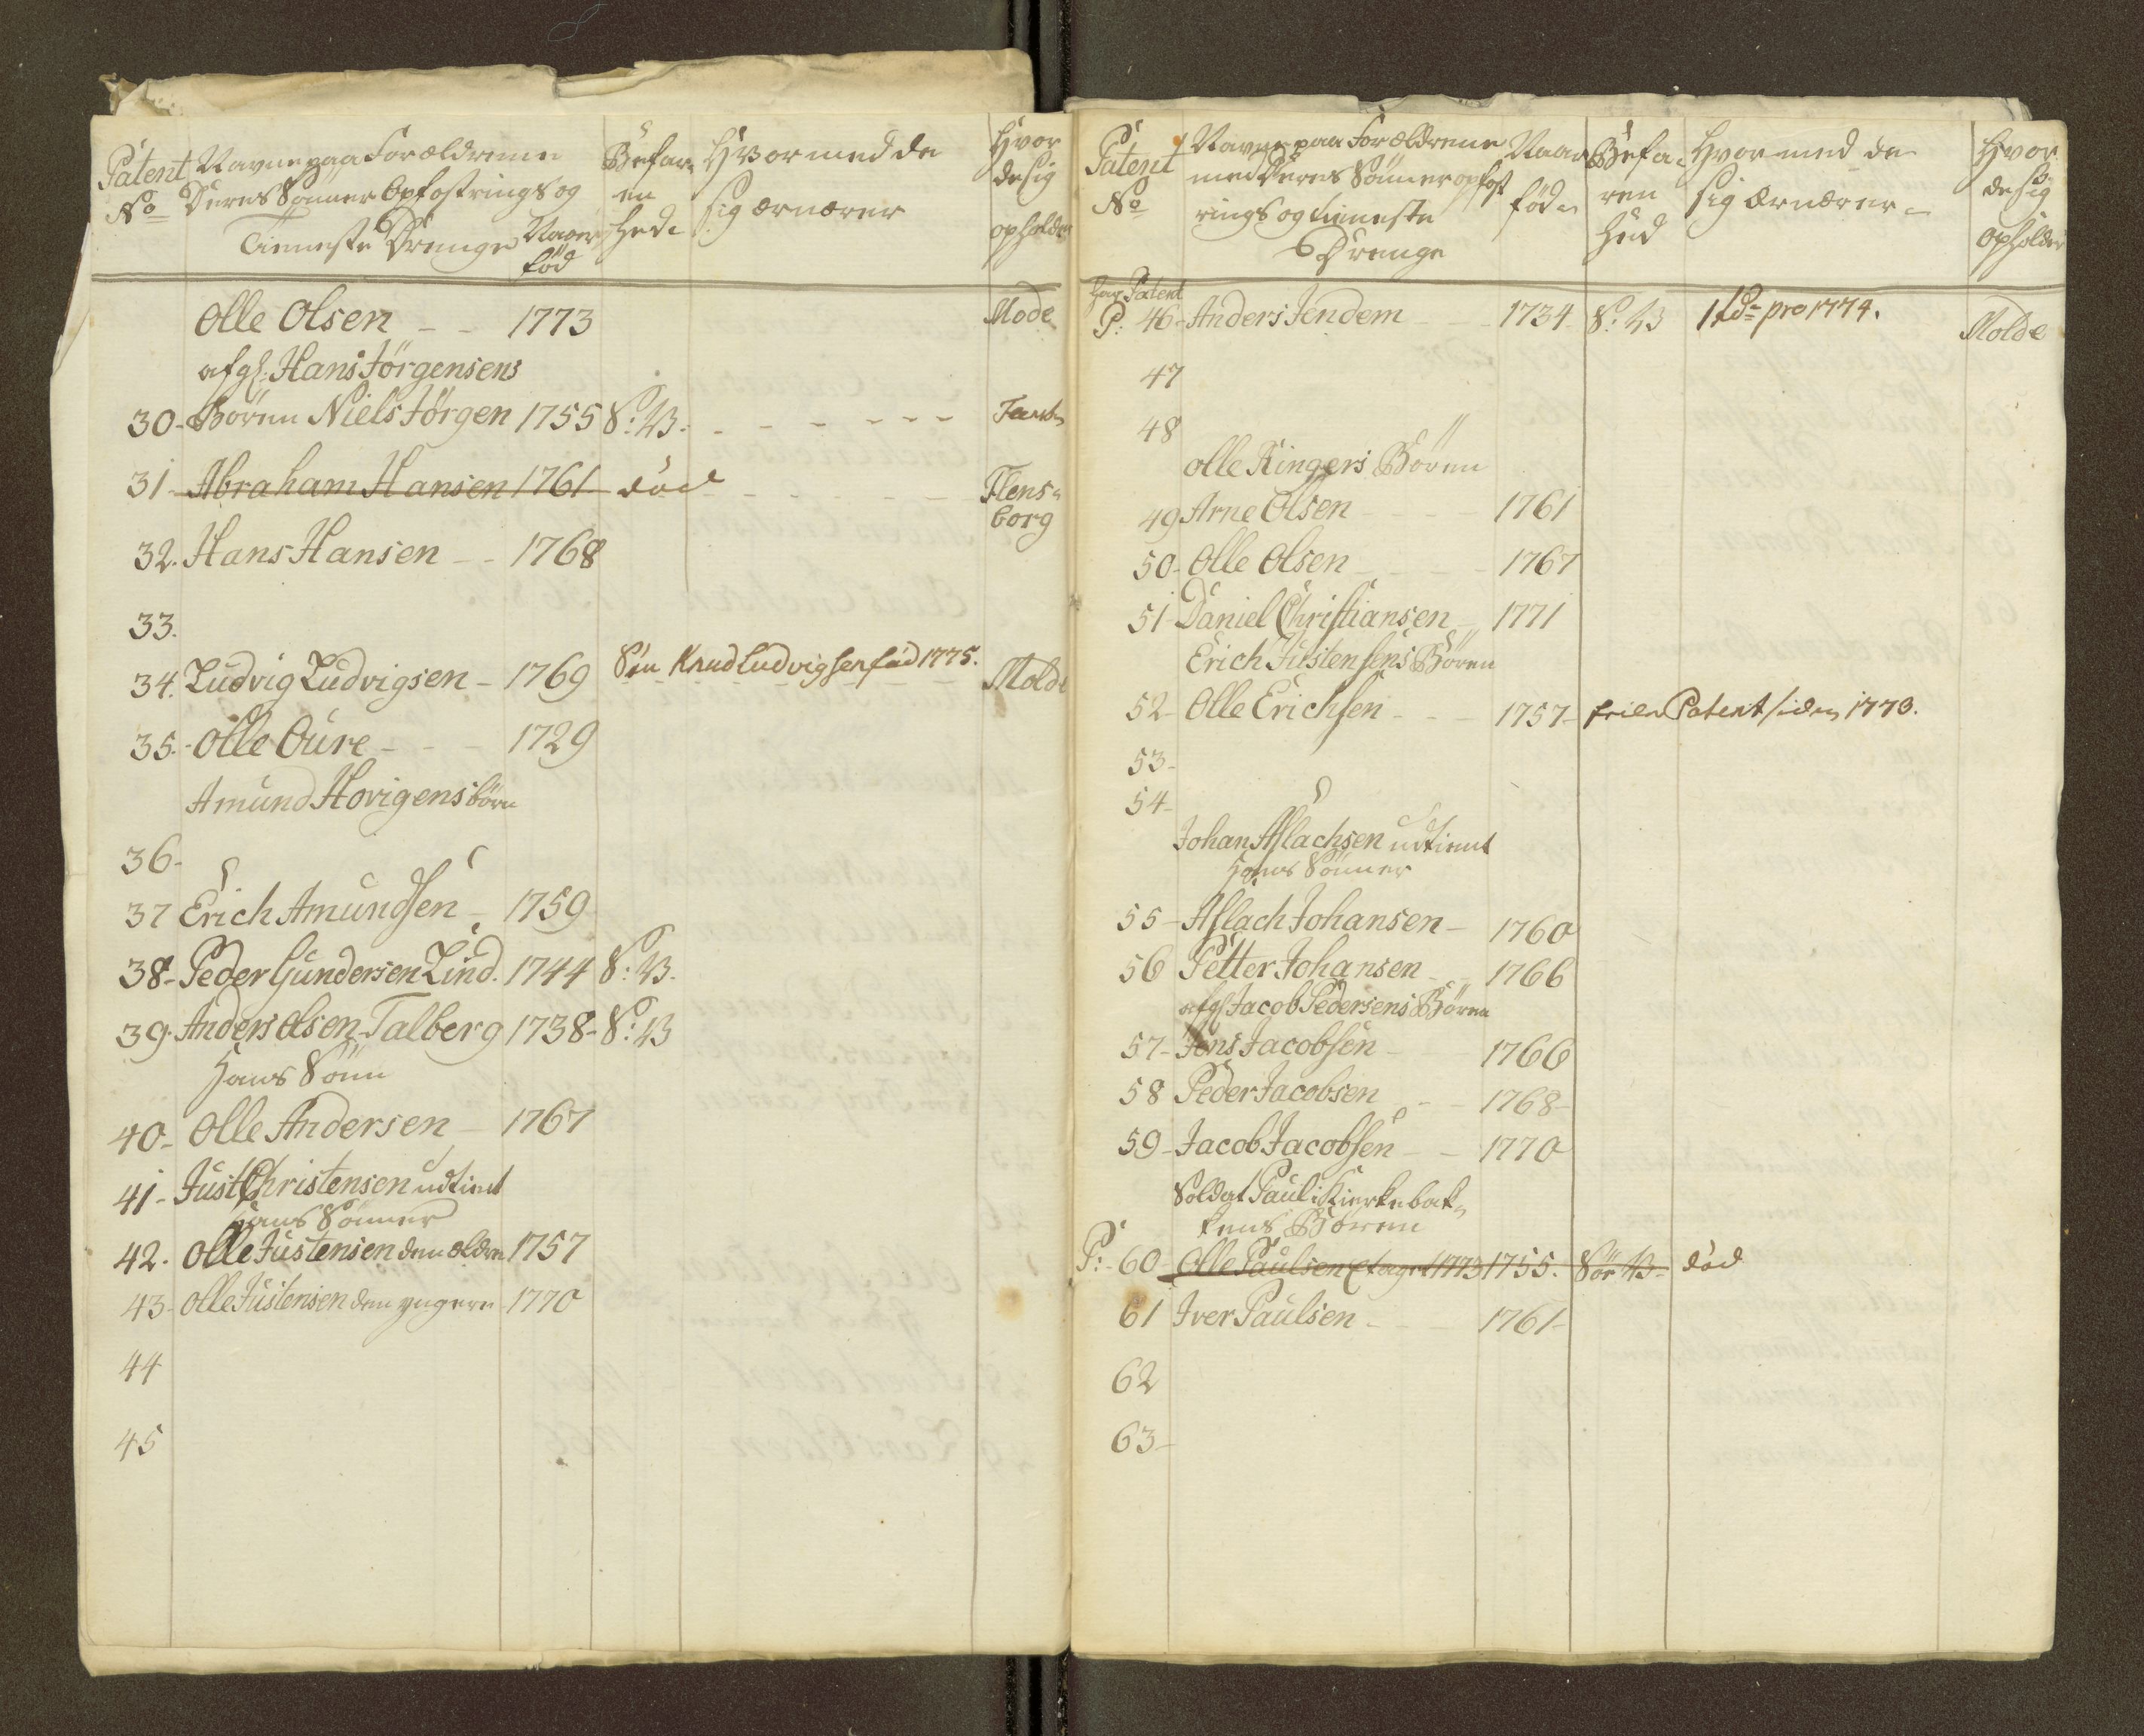 Patent No
Navne paa Forældrene
Deres Sönner Opfostrings og
Tieneste Drenge
Naar
föd
Befar-
en
hed.
Hvormed de
sig ærnærer
Hvor
de sig
opholder
Olle Olsen - - 1773 Mode
afg: Hans Jörgensens
30 - Börn Niels Jörgen 1755 S: B. - - - - - -
31 - Abraham Hansen 1761 död - - - Flens-
borg
32. Hans Hansen - - 1768
33.
34. Ludvig Ludvigsen - 1769 Sön Knud Ludvigsen föd 1775. Molde
35. - Olle Oure - - - 1729
Amund Horigens börn
36 -
37 Erich Amundsen - 1759
38 - Peder Gundersen Lind. 1744 S: B.
39. Anders Olsen Talberg 1738 - S: B
Hans Sönn
40 - Olle Andersen - 1767
41 - Just Christensen udtient
Hans Sönner
42. Olle Justensen den ældre 1757
43 - Olle Justensen den yngere - 1770
44
45
Patent
No
Navne paa Forældrene
med Deres Sönner opfost
rings og tieneste
Drenge
Naar
föd -
Befa-
ren
hed
Hvormed de
sig Ærnærer -
Hvor
de sig
opholder
har Patent
P: 46 - Anders Jendem - - - 1734 - S: B 1 rd pro 1774. Molde
47
48
Olle Ringers Börn
49 Arne Olsen - - - 1761
50 - Olle Olsen - - - - 1767
51 - Daniel Christiansen - 1771
Erich Justensens Börn
52 - Olle Erichsen - - - 1757 - Patent siden 1773.
53 -
54 -
Johan Aslachsen udtient
Hans Sönner
55 - Aslach Johansen - 1760
56 Petter Johansen - - 1766
afg Jacob Pedersens Börn
57 - Jens Jacobsen - - - 1766
58 Peder Jacobsen - - - 1768 -
59 - Jacob Jacobsen - - 1770
Soldat Paul i Kirkebak-
kens Börn
P: - 60 - Olle Paulsen 1773 1755. Sör B - död
61 Iver Paulsen - - - 1761 -
62
63 -